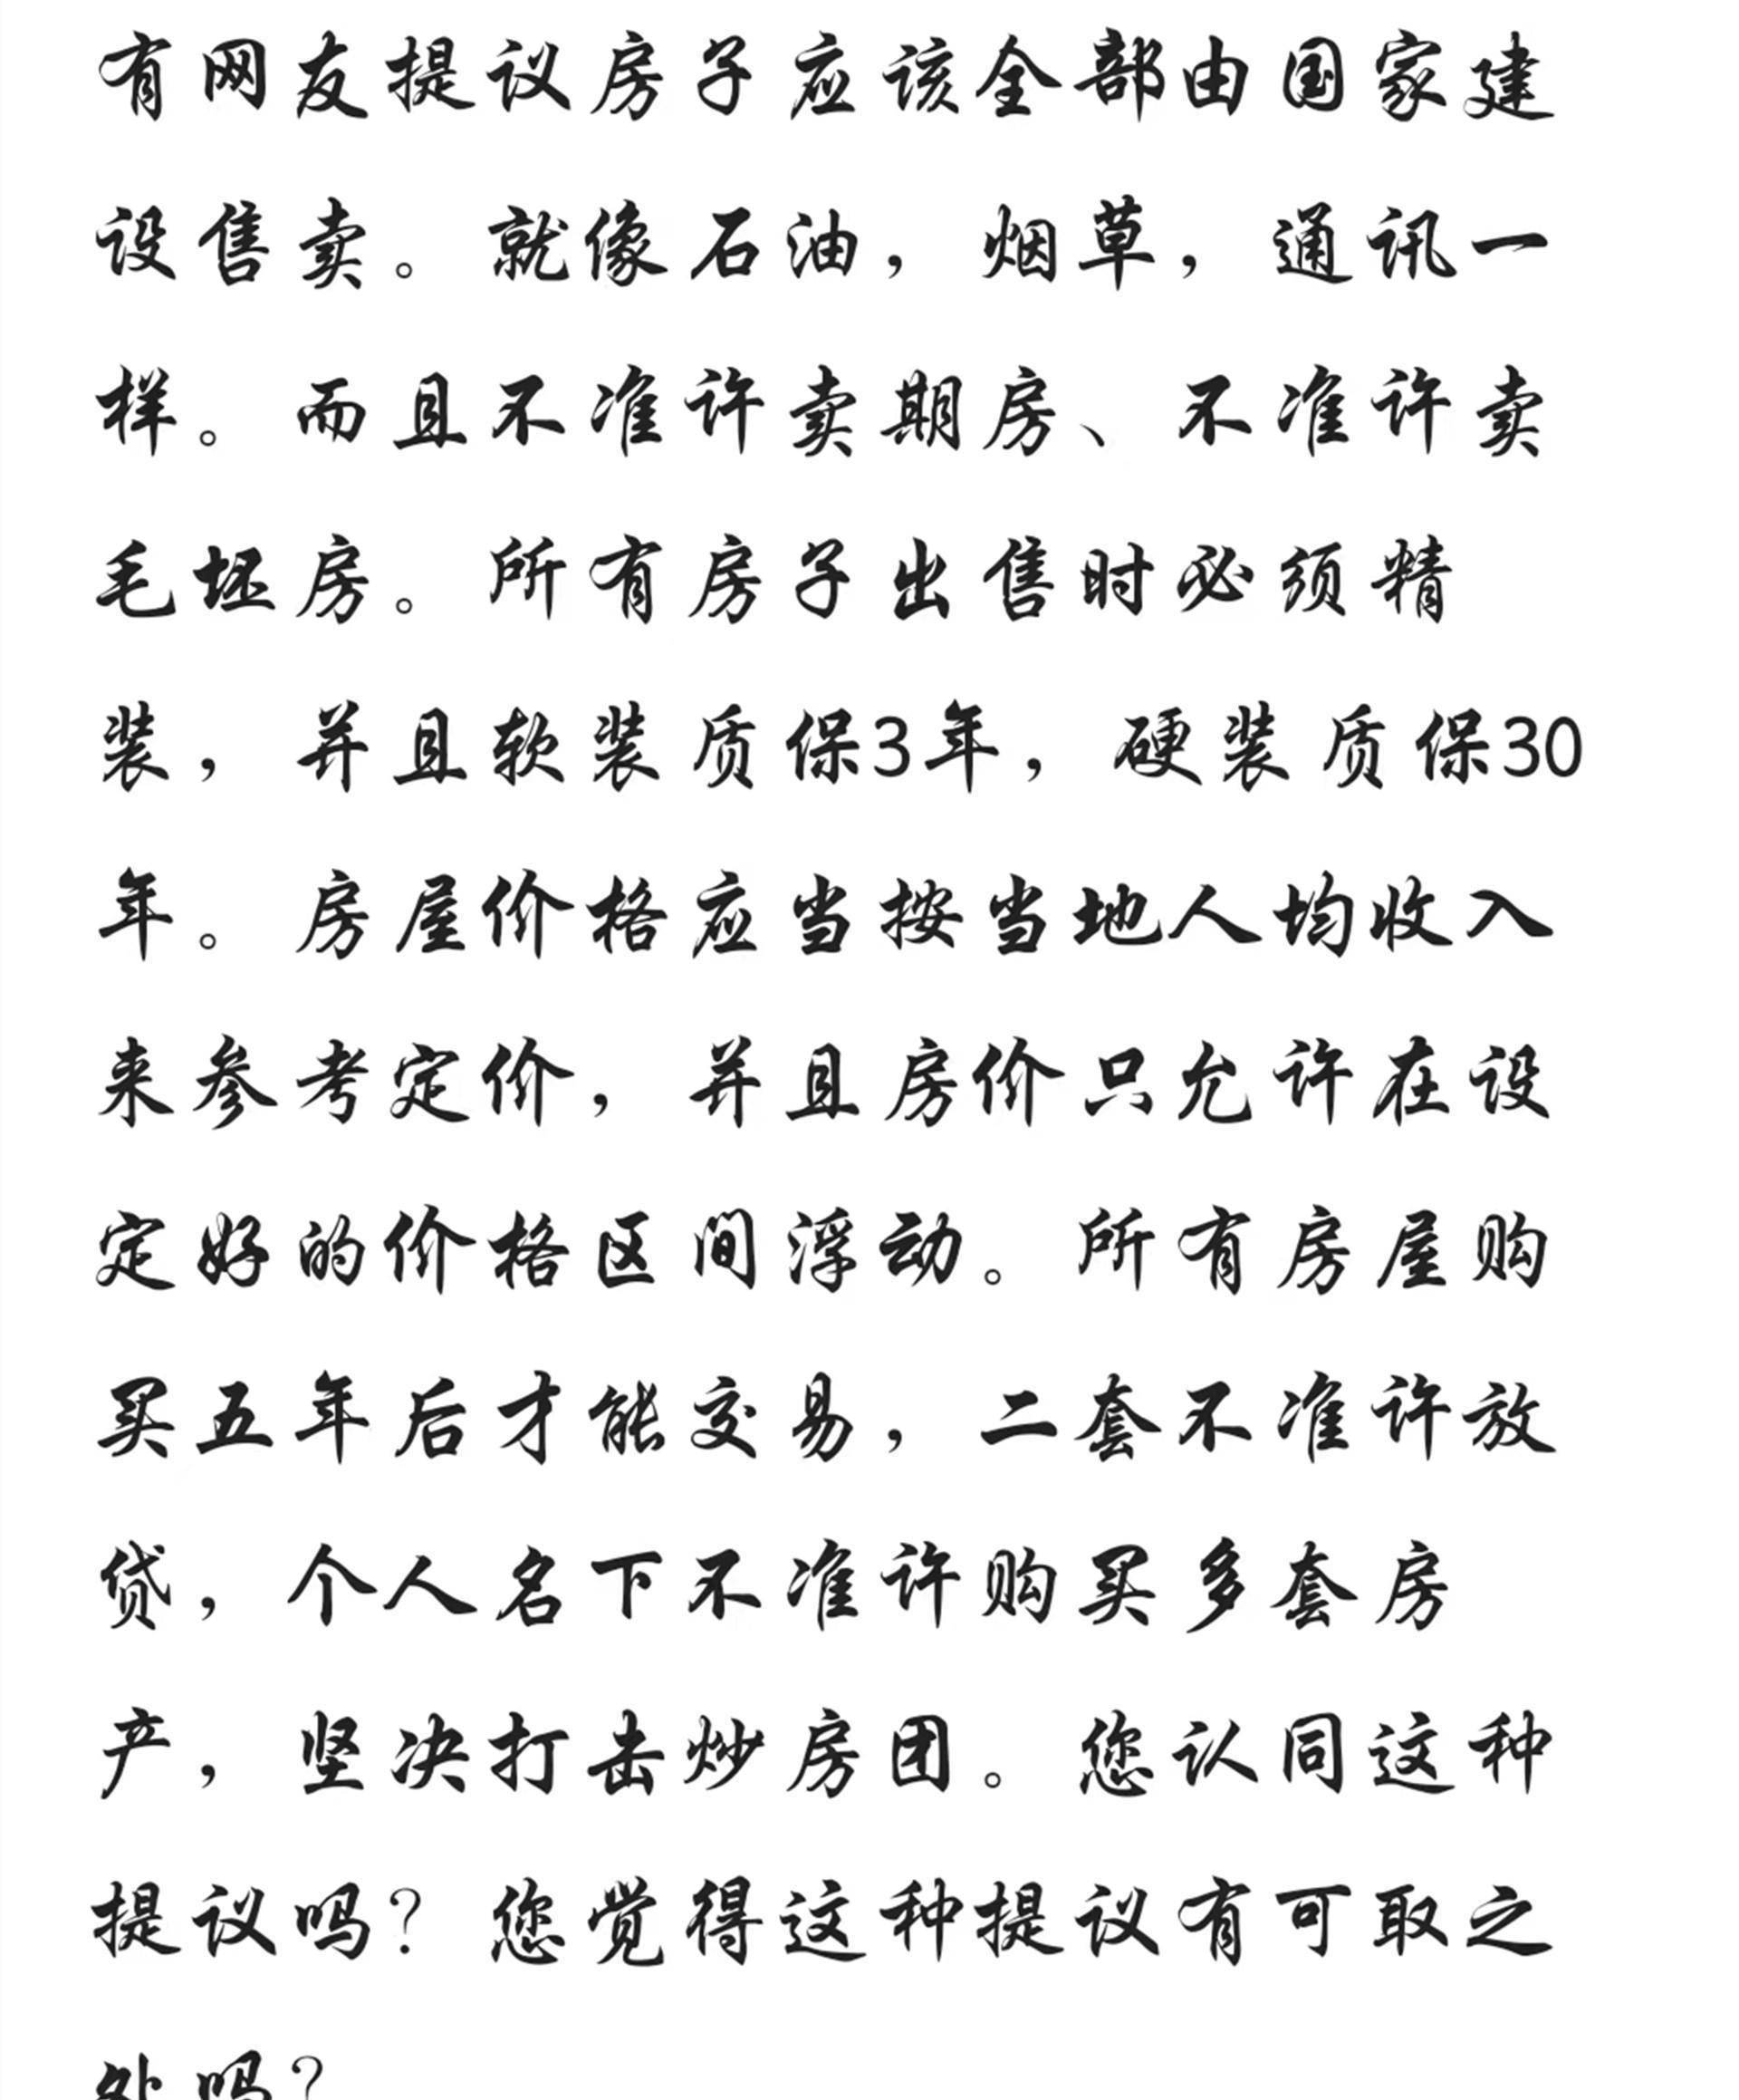 有网友提议房子应该全部由国家建
设售卖。就像石油，烟草，通讯一
样。而且不准许卖期房、不准许卖
毛坯房。所有房子出售时必须精
装，并且软装质保3年，硬装质保30
年。房屋价格应当按当地人均收入
来参考定价，并且房价只允许在设
定好的价格区间浮动。所有房屋购
买五年后才能交易，二套不准许放
贷，个人名下不准许购买多套房
产，坚决打击炒房团。您认同这种
提议吗？您觉得这种提议有可取之
处吗？